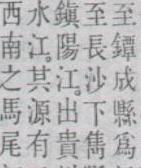 至鐔成縣爲
至長沙下雋
鎭陽江。出貴
水江。其源有
西南之馬尾